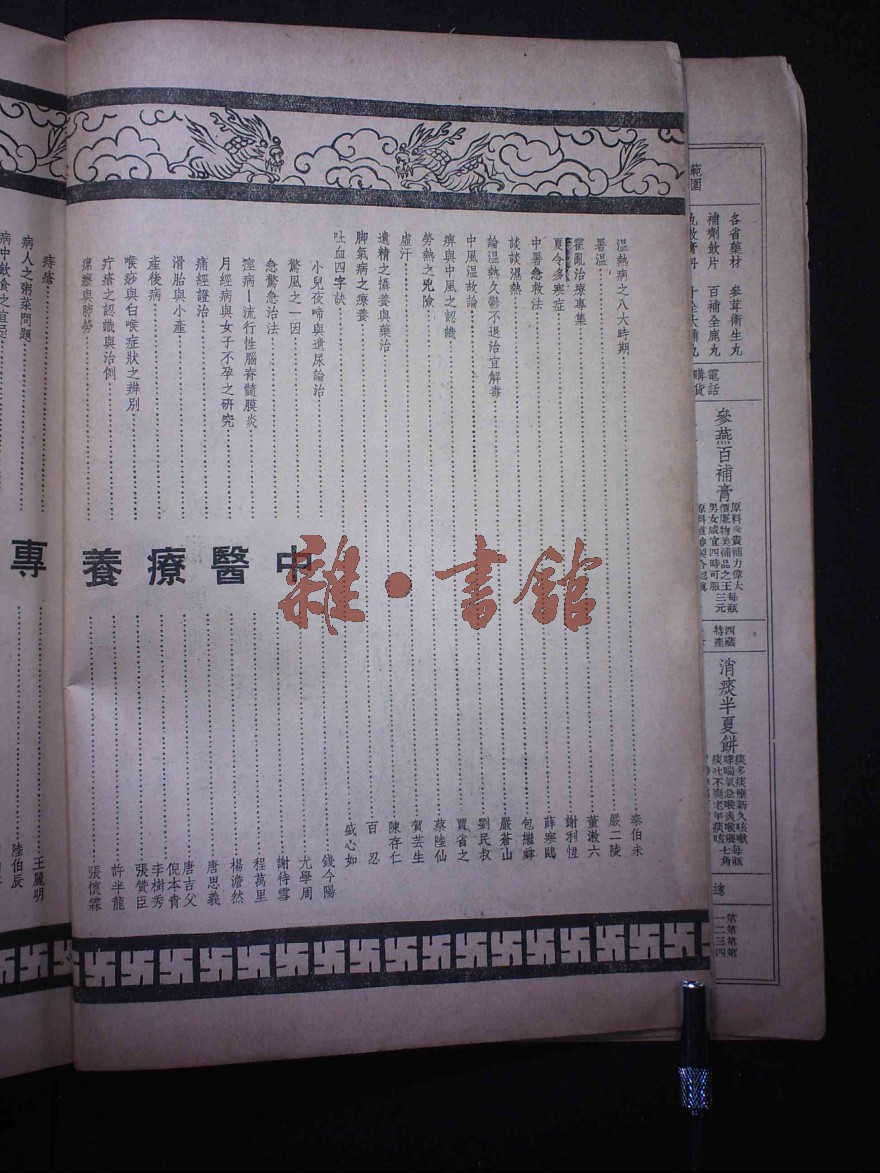 各省藥材　參茸衛生丸
補劑飲片　百補全鹿丸
範圍
電話
購貨
參燕百補膏
原料珍貴補力偉大
價廉物美補品之王每瓶
男女咸宜四時可服 三元
西藏
特產
消痰半夏餅
痰多痰壅新久咳嗽每瓶
哮喘氣急喉炎喉癢七角
痰吐不爽老年痰咳
總
第一 第二 第三 第四舘
溫熱病之八大時期……秦伯未
暑溫……嚴二陵
霍亂治療專集……董漱六
夏令多寒症……謝利恒
中暑急救法……薛寒鷗
談談濕熱……包繼
論溫熱久鬱不退治宜解毒……嚴蒼山
中風溫故論……劉民叔
痹與中風之認識……賈省之
勞熱之兇險……蔡陸仙
虛汗……賀芸生
遺精之攝養與藥治……陳存仁
脚氣病之療養……百忍
吐血四字訣……盛心如
中醫療養專
小兒夜啼與遺尿論治……錢今陽
驚風之一因……尤學周
急驚急治法……謝侍雪
痙病—流行性腦脊髓膜炎……程萬里
月經病與女子不孕之研究……楊澹然
痛經證治……唐思義
滑胎與小產……唐吉父
產後病……倪本青 李樹秀
喉痧與白喉症狀之辨別……張贊臣
疔瘡之認識與治例……許半龍
瘰癧與肺勞……張懷霖
痔瘡……王麗明
病人之粥菜問題……陸伯辰
病中飲食之宜忌
雜·書館